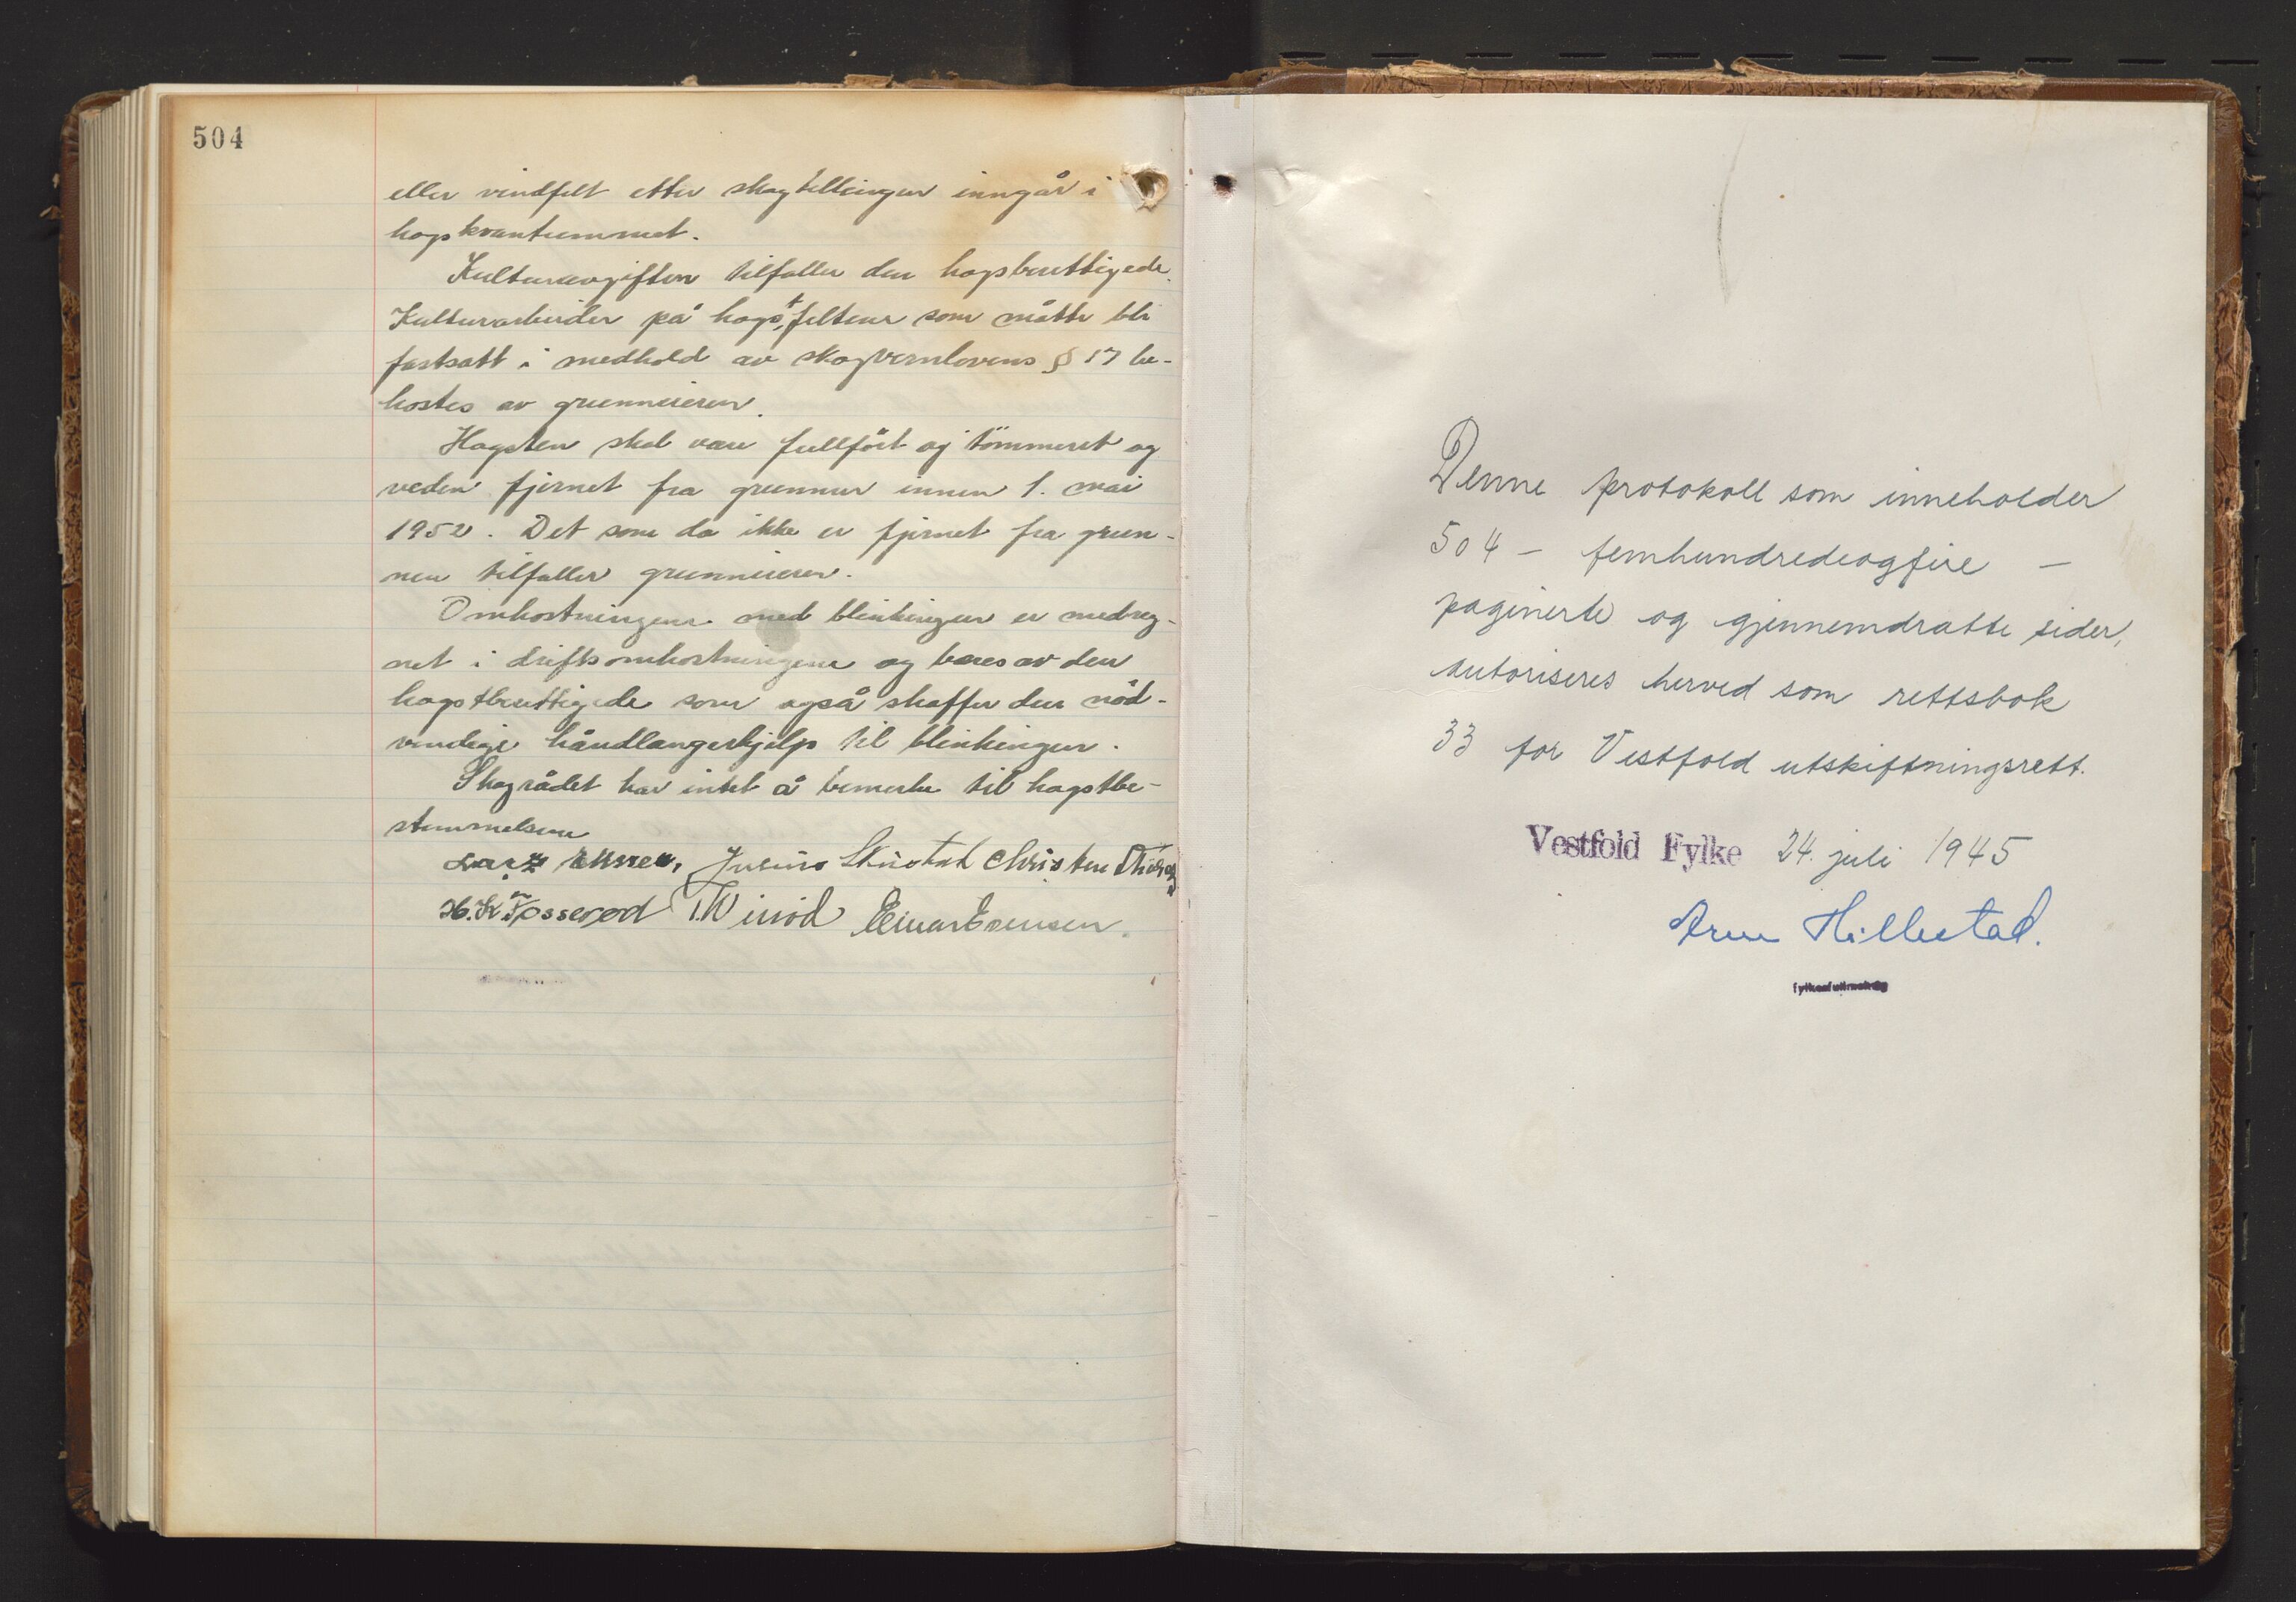 504
eller vindfelt etter skogtellingen inngår i
hogstkvantummet.
Kulturavgiften tilfaller den hogsberettigede.
Kulturarbeider på hogstfeltene som måtte bli
fastsatt i medhold av skogvernlovens § 17 be-
kostes av grunneieren.
Hogsten skal være fullført og tömmeret og
veden fjernet fra grunnen innen 1. mai
1952. Det som da ikke er fjernet fra grun-
nen tilfaller grunneieren.
Omkostningene med blinkingen er medreg-
net i driftsomkostningene og bæres av den
hogstberettigede som også skaffer den nöd-
vendige håndlangerhjelp til blinkingen.
Skogrådet har intet å bemerke til hogstbe-
stemmelsene
Christen
H. K. Fossерød Einar Evensen.
Denne protokoll som inneholder
504 – femhundredeogfire –
paginerte og gjennemdratte sider,
autoriseres herved som rettsbok
33 for Vestfold utskiftningsrett.
Vestfold Fylke 24. juli 1945
Arne Hillestad.